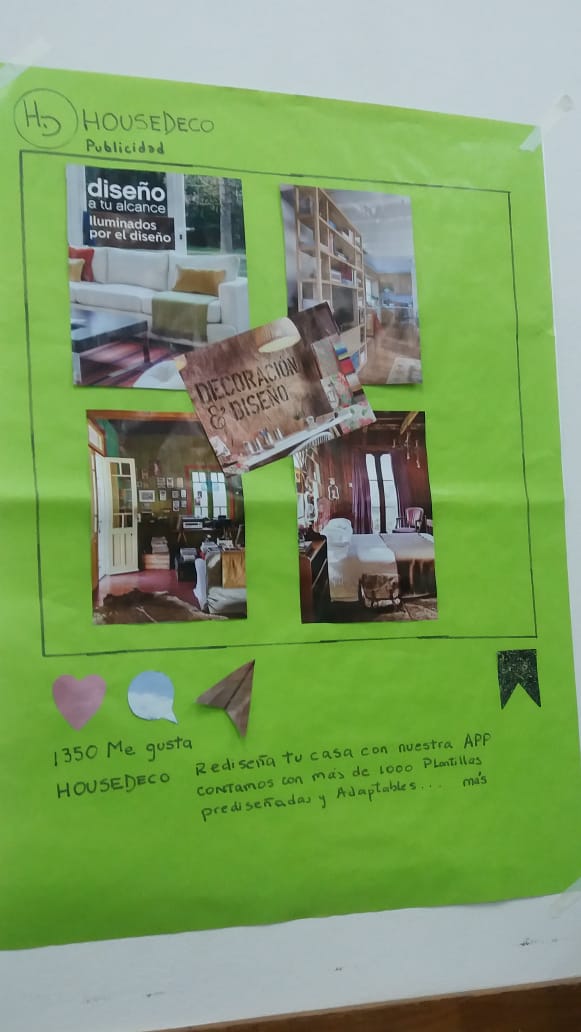 HD HOUSEDECO
Publicidad
diseño
a tu alcance
Iluminados
por el diseño
DECORACIÓN
& DISEÑO
1350 Me gusta
HOUSEDECO Rediseña tu casa con nuestra APP
CONTAMOS CON más de 1000 Plantillas
prediseñadas y Adaptables... más